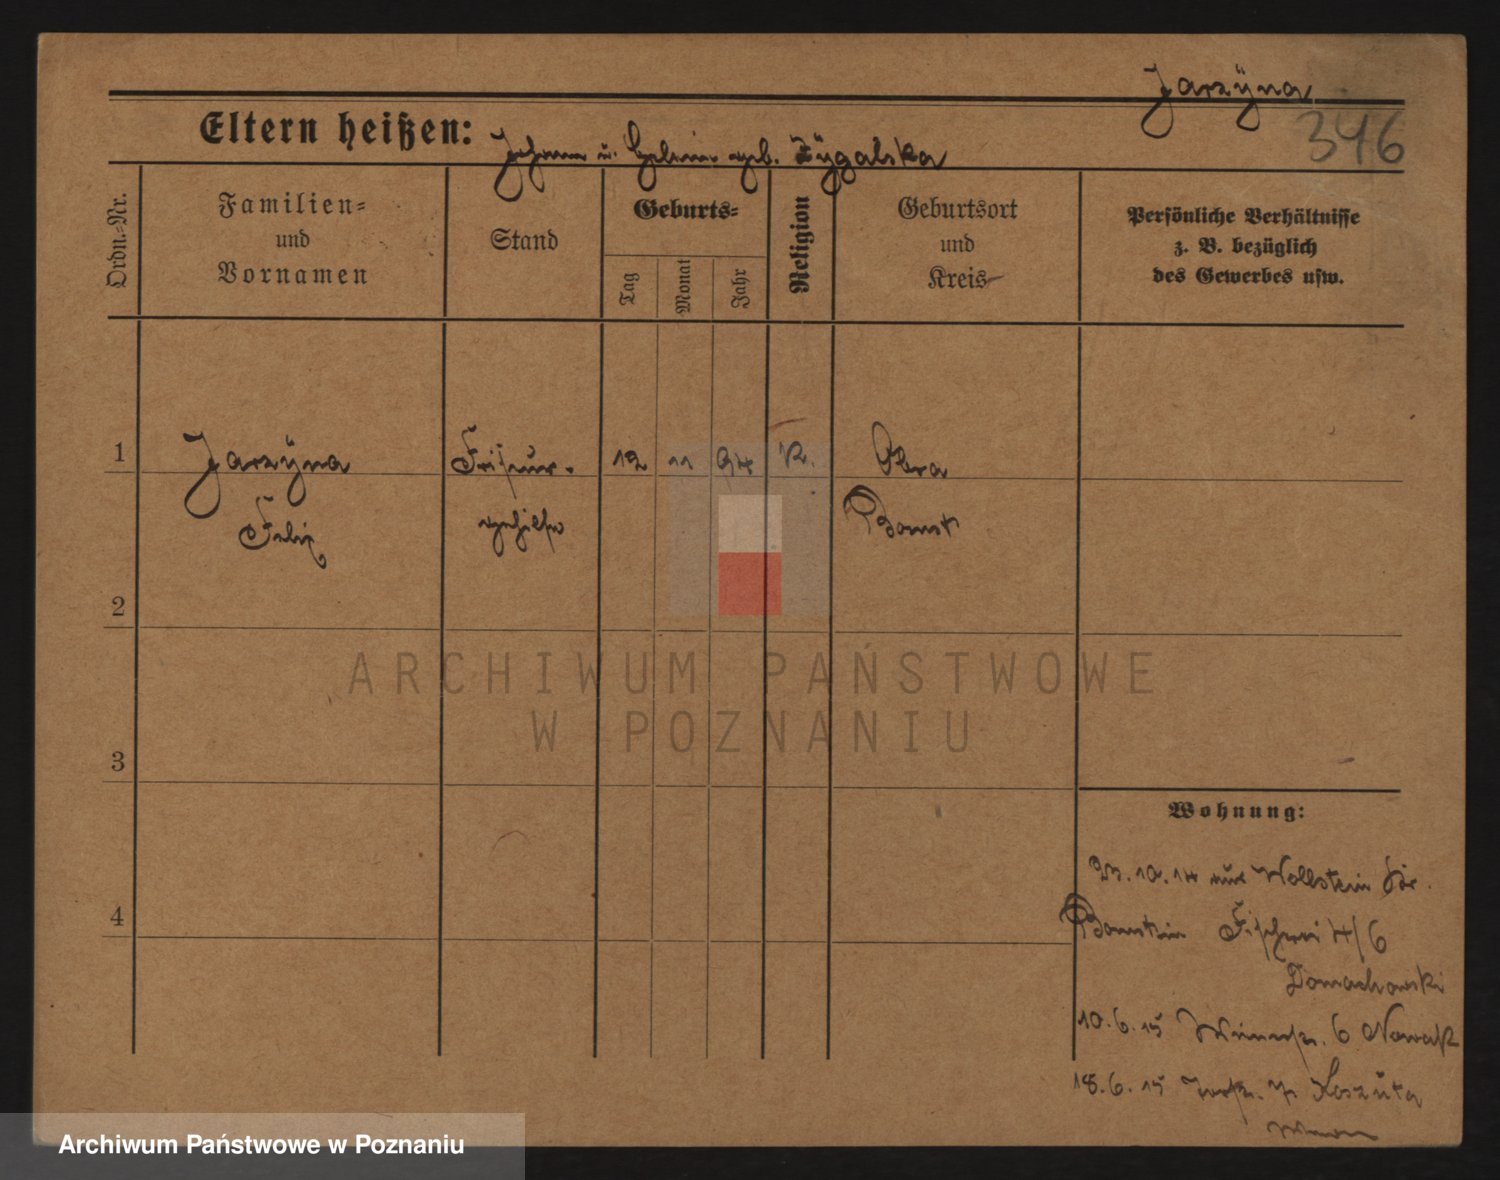 Jarzÿna
346
Eltern heißen:
Johann u. geb. Zÿgalska
Ordn.=Nr.
Familien=
und
Vornamen
Stand
Geburts=
Tag
Monat
Jahr
Religion
Geburtsort
und
Kreis
Persönliche Verhältnisse
z. B. bezüglich
des Gewerbes usw.
1
Jarzÿna
Friseur-
12
11
94
K.
Obra
Felix
gehilfe
Bomst
2
ARCHIWUM PAŃSTWOWE
W POZNANIU
3
Wohnung:
10.14 aus Wollstein Kr.
4
Fischerei 4/6
Domachowski
10.6.15 6 Nowak
18.6.15 Koszuta
Archiwum Państwowe w Poznaniu